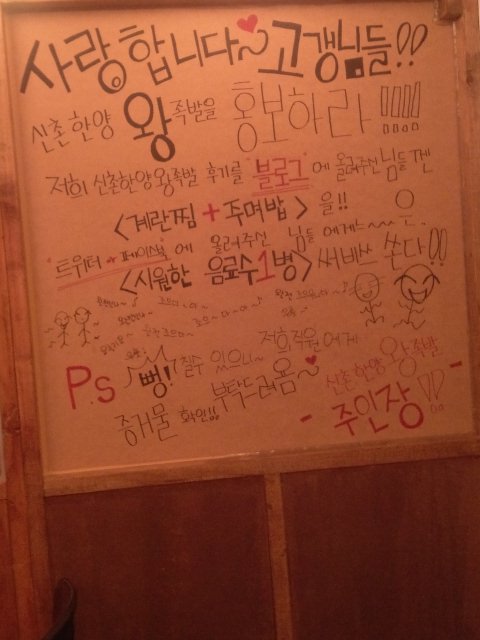 사랑합니다~♥ 고갱님들!!
신촌한양 왕족발을 홍보하라 !!!!
저희 신촌한양왕족발 후기를 "블로그"에 올려주신 님들껜
<계란찜 + 주먹밥> 을!! 으.
"트위터 or 페이스북"에 올려주신 님들에게는~~~
<시원한 음료수 1병> 써비쓰 쏜다!!
P.s 뻥! 칠수 있으니~ 저희 직원에게
증거물 확인!! 부탁드려욤~♥
신촌한양왕족발
- 주인장!! -